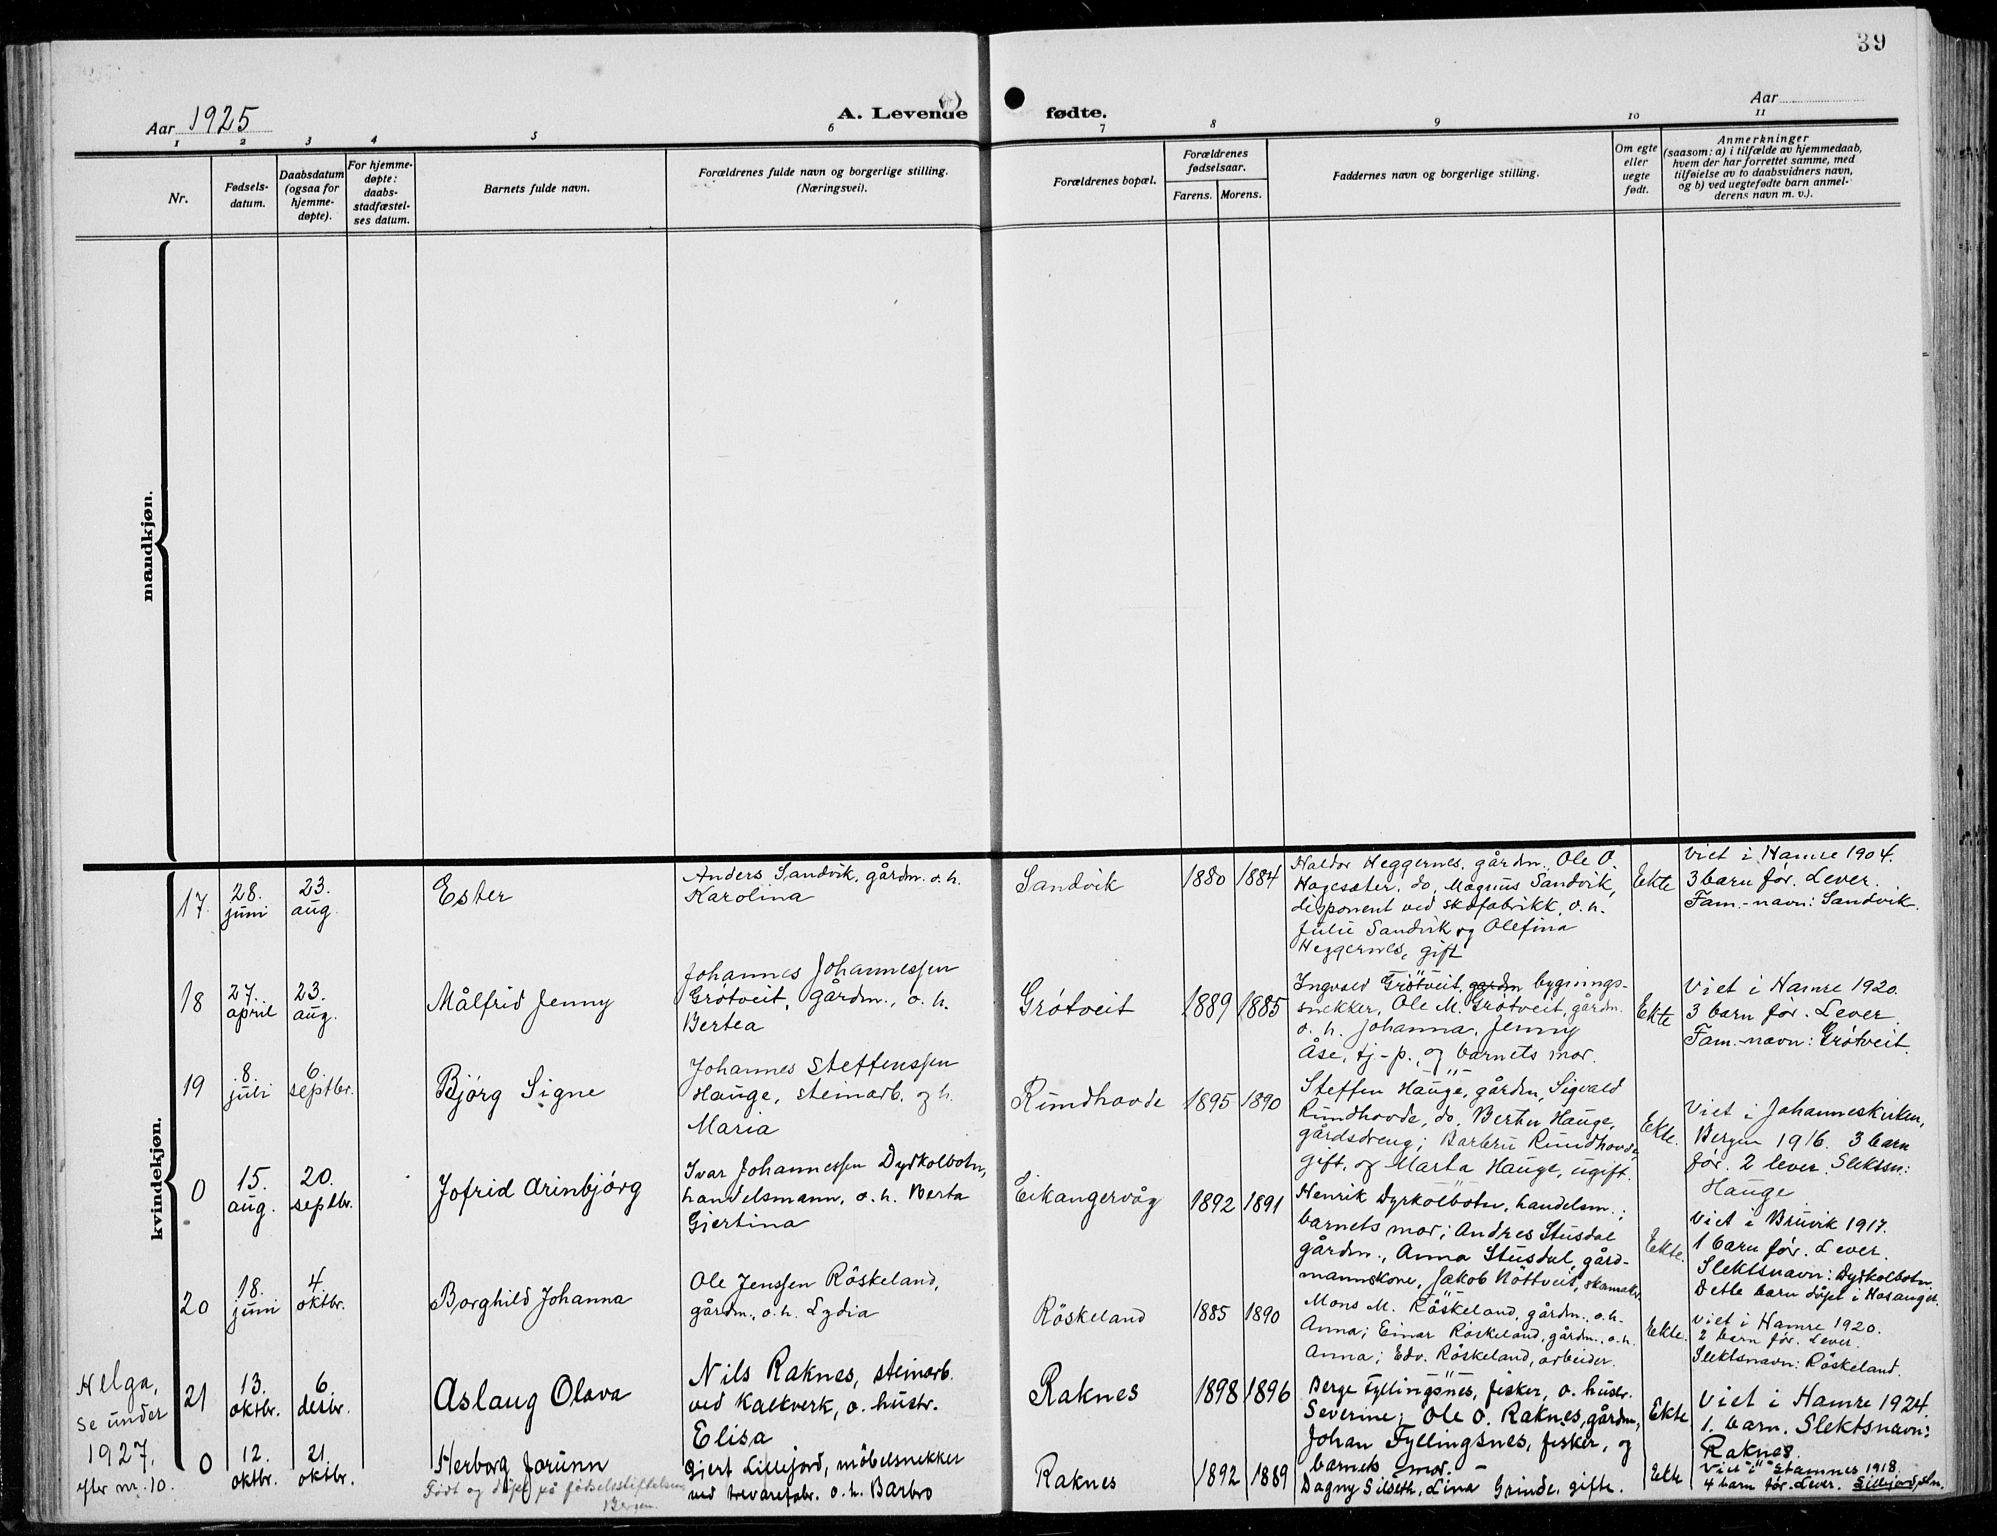 39
Aar 1925
A. Levende fødte.
Aar
1 2 3 4 5 6 7 8 9 10 11
Nr.
Fødsels-
datum.
Daabsdatum
(ogsaa for
hjemme-
døpte).
For hjemme-
døpte:
daabs-
stadfæstel-
ses datum.
Barnets fulde navn.
Forældrenes fulde navn og borgerlige stilling.
(Næringsvei).
Forældrenes bopæl.
Forældrenes
fødselsaar.
Farens. Morens.
Faddernes navn og borgerlige stilling.
Om egte
eller
uegte
født.
Anmerkninger
(saasom: a) i tilfælde av hjemmedaab,
hvem der har forrettet samme, med
tilføielse av to daabsvidners navn,
og b) ved uegtefødte barn anmel-
derens navn m. v.).
mandkjøn.
kvindekjøn.
17.
28.
juni
23.
aug.
Ester
Anders Sandvik, gårdm. o. h.
Karolina
Sandvik
1880 1884
Haldor Heggernes, gårdm. Ole O.
Hagesæter, do, Magnus Sandvik,
disponent ved skofabrikk, o. h.
Julie Sandvik og Olefina
Heggernes, gift
Ekte
Viet i Hamre 1904.
3 barn før. Lever.
Fam.-navn: Sandvik.
18
27.
april
23.
aug.
Målfrid Jenny
Johannes Johannessen
Grótveit, gårdm., o. h.
Bertea
Grótveit
1889 1885
Ingvald Grötveit, gårdm bygnings-
snekker, Ole M. Grótveit, gårdm.
o. h. Johanna, Jenny
Åse, tj-p., og barnets mor.
Ekte
Viet i Hamre 1920.
3 barn før. Lever.
Fam.-navn: Grótveit.
19
8.
juli
6.
septbr.
Bjórg Signe
Johannes Steffenssen
Hauge, steinarb. og h.
Maria
Rundhovde
1895 1890
Steffen Hauge, gårdm, Sigvald
Rundhovde, do, Berthu Hauge,
gårdsdreng; Barbru Rundhovde
gift, og Marta Hauge, ugift.
Ekte.
Viet i Johanneskirken,
Bergen 1916. 3 barn
før. 2 lever. Slektsn:
Hauge
0
15.
aug.
20.
septbr.
Jofrid Arinbjórg
Ivar Johannessen Dyrkolbotn,
handelsmann, o. h. Berta
Gjertina
Eikangervåg
1892 1891
Henrik Dyrkolbotn, handelsm.;
barnets mor; Andres Stusdal
gårdm., Anna Stusdal, gård-
mannskone, Jakob Nöttveit, skomaker
Ekte.
Viet i Bruvik 1917.
1 barn før. Lever.
Slektsnavn: Dyrkolbotn.
Dette barn døpt i Hosanger.
20
18.
juni
4.
oktbr.
Borghild Johanna
Ole Jenssen Röskeland,
gårdm., o. h. Lydia
Röskeland
1885 1890
Mons M. Röskeland, gårdm., o. h.
Anna; Einar Röskeland, gårdm., o. h.
Anna; Edv. Röskeland, arbeider.
Ekte.
Viet i Hamre 1920.
2 barn før. Lever.
Slektsnavn: Röskeland.
Helga,
se under
1927,
efter nr. 10.
21
13.
oktbr.
6.
desbr.
Aslaug Olava
Nils Raknes, steinarb.
ved kalkverk, o. hustr.
Elisa
Raknes
1898 1896
Berge Fyllingsnes, fisker, o. hustr.
Severine; Ole O. Raknes, gårdm,
Johan Fyllingsnes, fisker, og
barnets mor.
Ekte
Viet i Hamre 1924.
1. barn. Slektsnavn:
Raknes.
0
12.
oktbr.
21.
oktbr.
Herborg Jorunn
Født og døpt på fødselsstiftelsen
Bergen.
Gjert Lillejord, möbelsnekker
ved trevarefabr. o. h. Barbro
Raknes
1892 1889
Dagny Silseth, Lina Grinde, gifte.
Ekte
Viet i Stamnes 1918.
4 barn før. Lever.